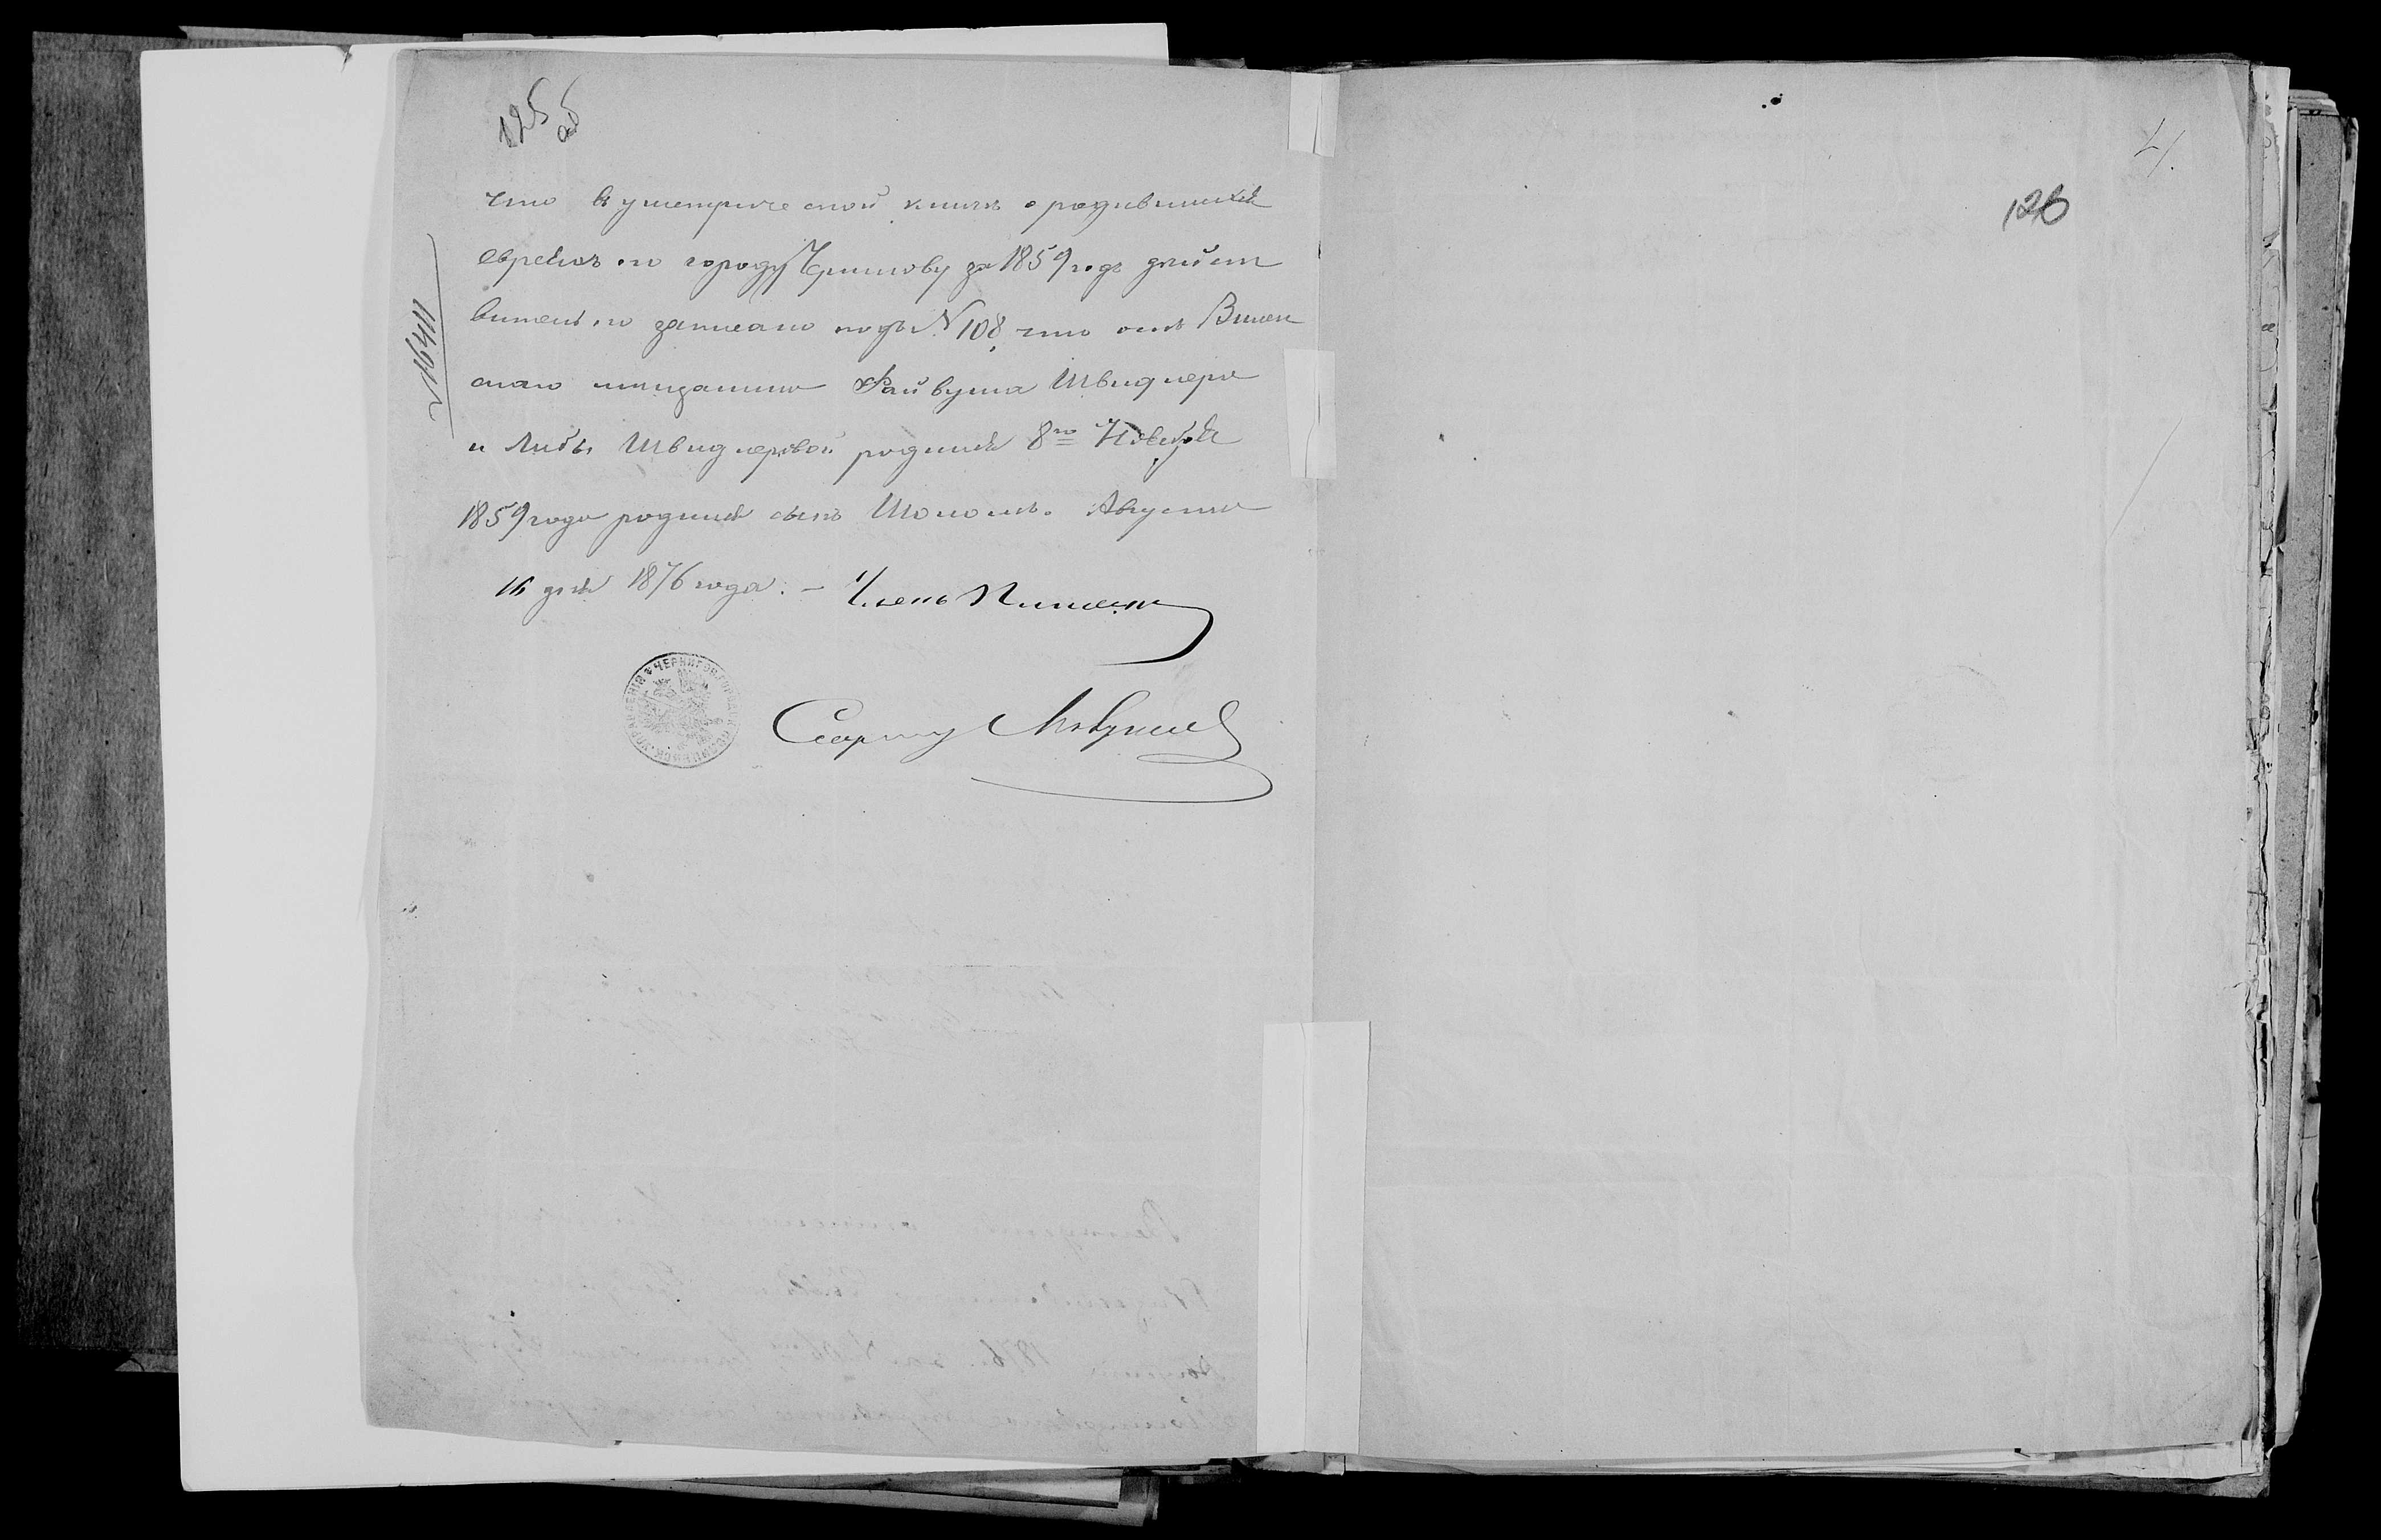 125
об
что въ метрической книгѣ о родившихся
евреяхъ по городу Чернигову за 1859 годъ дѣйст
вительно записано подъ № 108, что отъ Вилен
скаго мещанина Файвуша Швиднера
и Либы Швиднеровой родился 8го Ноября
1859 года родился сынъ Шоломъ. Августа
16 дня 1876 года. – Членъ
ЧЕРНИГОВ. ГОРОДСК. ПОЛИЦЕЙСК. УПРАВЛЕНІЯ
№ 16411
4.
126